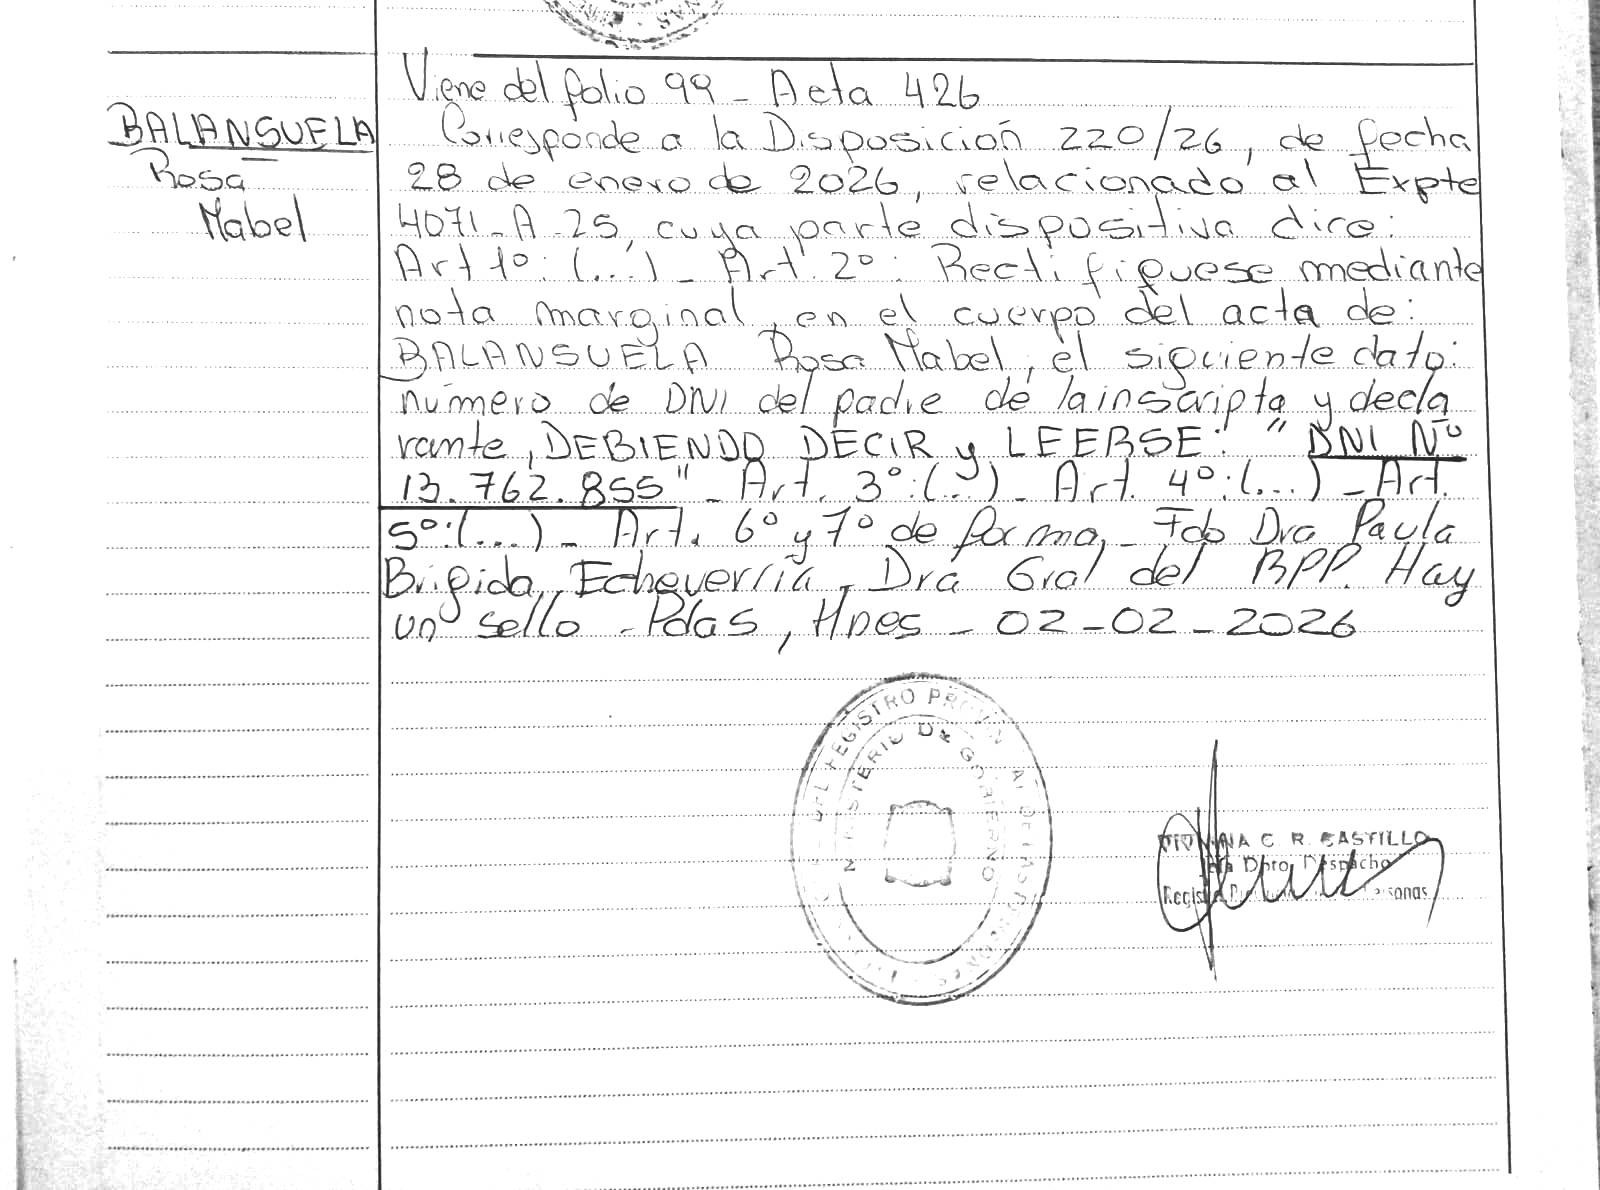 Viene del folio 99 - Acta 426
BALANSUELA
Rosa
Mabel
Corresponde a la Disposición 220/26, de fecha
28 de enero de 2026, relacionado al Expte
4071-A-25, cuya parte dispositiva dice:
Art 1º: (...) - Art. 2º: Rectifiquese mediante
nota marginal, en el cuerpo del acta de:
BALANSUELA Rosa Mabel, el siguiente dato:
número de DNI del padre de la inscripta y decla
rante, DEBIENDO DECIR y LEERSE: "DNI Nº
13.762.855" - Art. 3º: (...) - Art. 4º: (...) - Art.
5º: (...) - Art. 6º y 7º de forma, - Fdo Dra Paula
Brigida, Echeverria, Dra Gral del RPP. Hay
un sello - Pdas, Mnes - 02-02-2026
REGISTRO
MINISTERIO DE GOBIERNO
C. R. CASTILLO
Jefa Dpto. Despacho